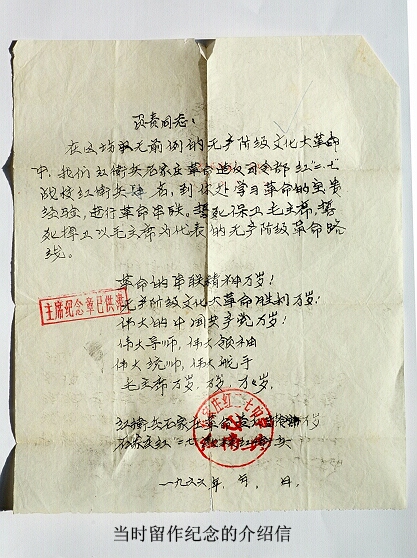 负责同志:
在这场史无前例的无产阶级文化大革命
中,我们红衛兵石家庄革命造反司令部红"二.七"
战校红衛兵肆名,到你处学习革命的宝贵
经验,进行革命串联。誓死保卫毛主席,誓
死捍卫以毛主席为代表的无产阶级革命路
线。
革命的串联精神万岁!
无产阶级文化大革命胜利万岁!
主席纪念章已供
伟大的中国共产党万岁!
伟大导师,伟大领袖
伟大统帅,伟大舵手
毛主席万岁,万岁,万万岁。
红衛兵石家庄革命造反
石家庄红"二七"战校红衛兵
一九六六年 月 日.
当时留作纪念的介绍信